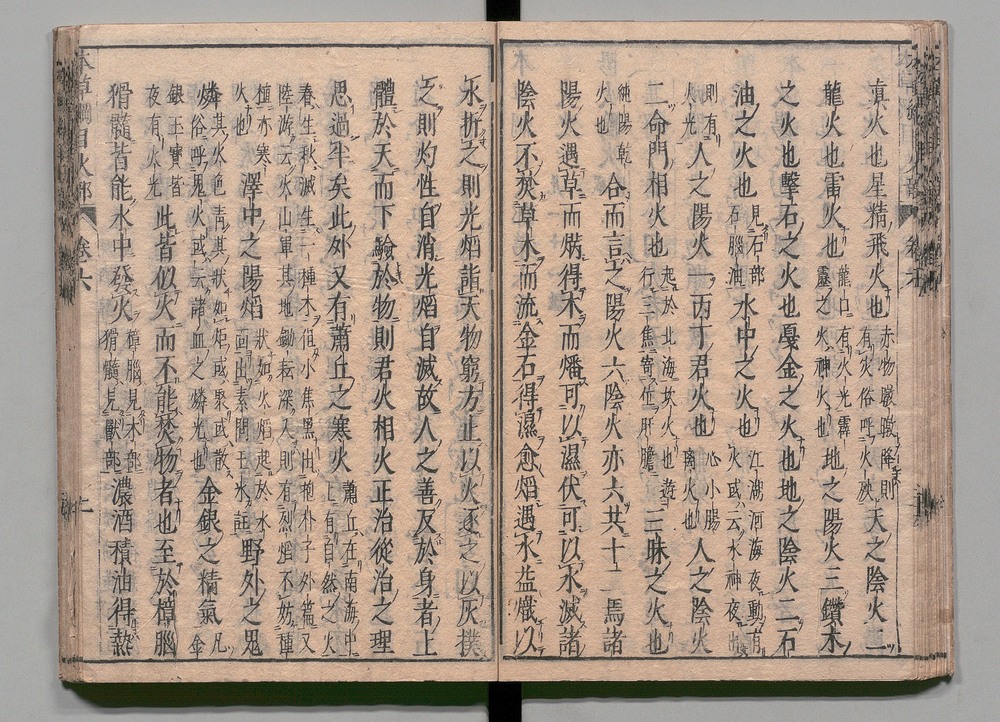 真火也星精飛火也赤物暾暾降則有災俗呼火殃天之陰火二
龍火也雷火也龍口有火光霹靂之火神火也地之陽火三鑽木
之火也擊石之火也戞金之火也地之陰火二石
油之火也見石部石腦油水中之火也江湖河海夜動有火或云水神夜出
則有火光人之陽火一丙丁君火也心小腸離火也人之陰火
二命門相火也起於北海坎火也遊行三焦寄位肝膽三昧之火也
純陽乾火也合而言之陽火六陰火亦六共十二焉諸
陽火遇草而焫得木而燔可以濕伏可以水滅諸
陰火不焚草木而流金石得濕愈焰遇水益熾以
水折之則光焰詣天物窮方止以火逐之以灰撲
之則灼性自消光焰自滅故人之善反於身者上
體於天而下驗於物則君火相火正治從治之理
思過半矣此外又有蕭丘之寒火蕭丘在南海中上有自然之火
春生秋滅生一種木但小焦黑出抱朴子外篇又陸游云火山軍其地鋤耘深入則有烈焰不妨種
植亦寒火也澤中之陽焰狀如火焰起於水面出素問王冰註野外之鬼
燐其火色青其狀如炬或聚或散俗呼鬼火或云諸血之燐光也金銀之精氣凡金
銀玉寶皆夜有火光此皆似火而不能焚物者也至於樟腦
猾髓皆能水中發火樟腦見木部猾髓見獸部濃酒積油得熱
本草綱目火部 卷六